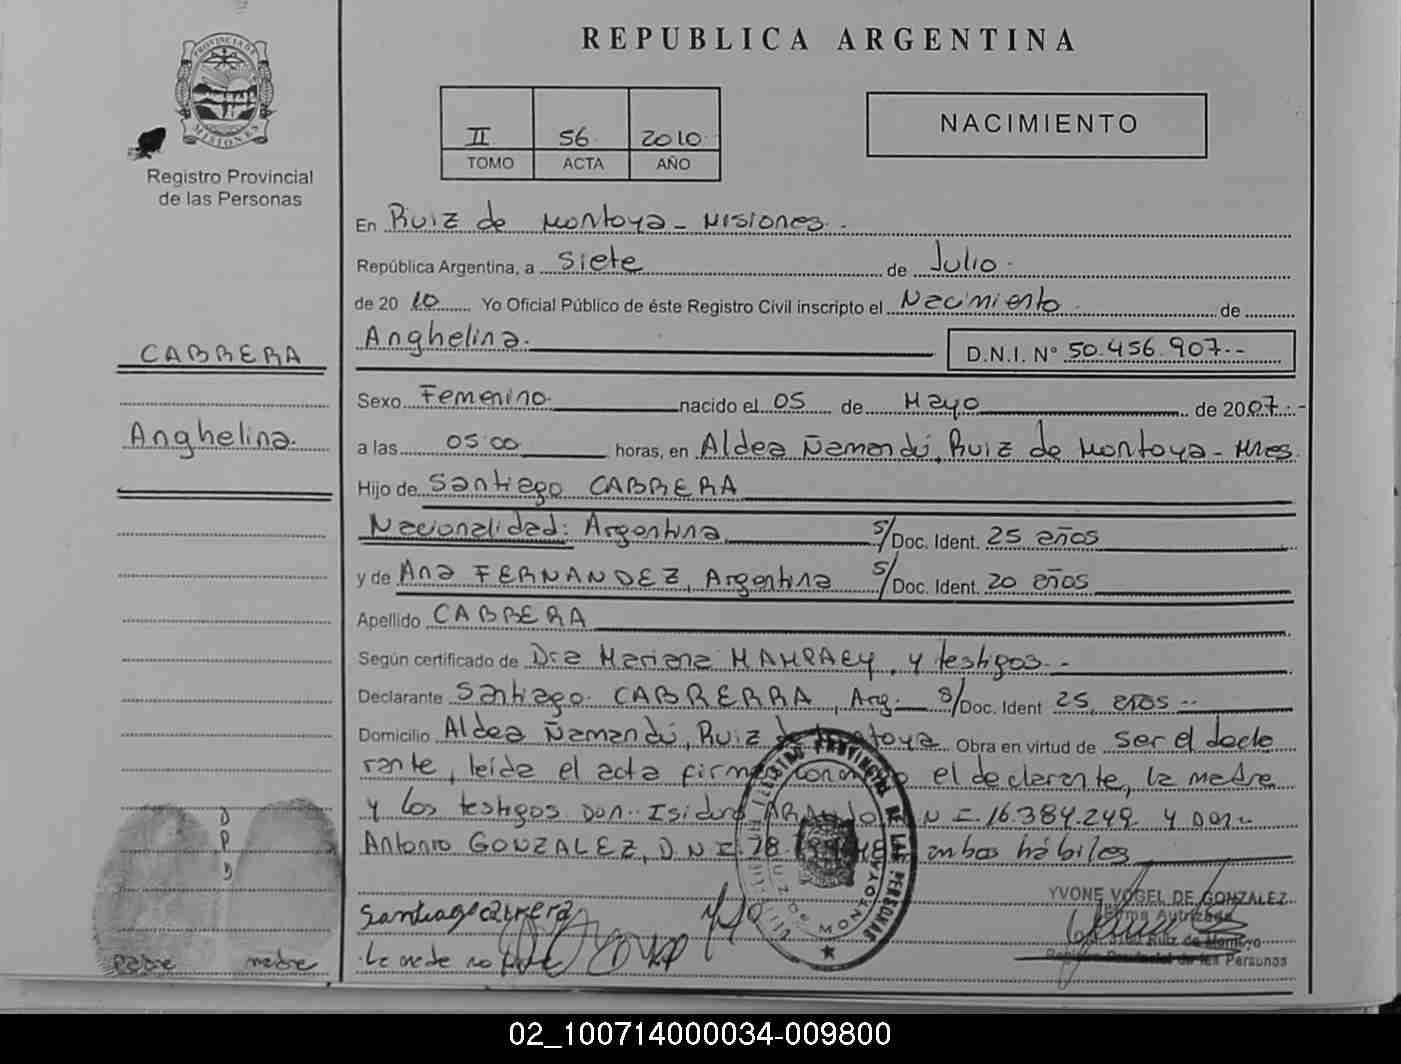 REPUBLICA ARGENTINA
PROVINCIA DE
MISIONES
Registro Provincial
de las Personas
II 56 2010
TOMO ACTA AÑO
NACIMIENTO
En Ruiz de Montoya - Misiones.
República Argentina, a Siete de Julio.
de 20 10 Yo Oficial Público de éste Registro Civil inscripto el Nacimiento de
Anghelina. D.N.I. Nº 50.456.907.-
CABRERA
Anghelina.
Sexo Femenino nacido el 05 de Mayo de 2007.-
a las 05:00 horas, en Aldea Ñamandú, Ruiz de Montoya - Mnes.
Hijo de Santiago CABRERA
Nacionalidad: Argentina s/Doc. Ident. 25 años
y de Ana FERNANDEZ, Argentina s/Doc. Ident. 20 años
Apellido CABRERA
Según certificado de Dra Mariana y testigos.-
Declarante Santiago CABRERRA, Arg. s/Doc. Ident 25 años --
Domicilio Aldea Ñamandú, Ruiz de Montoya Obra en virtud de ser el decla
rante, leída el acta el declarente, la madre
y los testigos Don: Isidro D N I. 16.384.249 y Don
Antonio GONZALEZ, D.N I. 28. ambos hábiles
Santiago cabrera
La madre no
padre madre
REGISTRO PROVINCIAL DE LAS PERSONAS
RUIZ DE MONTOYA
YVONE VOGEL DE GONZALEZ
Firma Autorizada
Ruiz de Montoya
Registro Provincial de las Personas
02_100714000034-009800